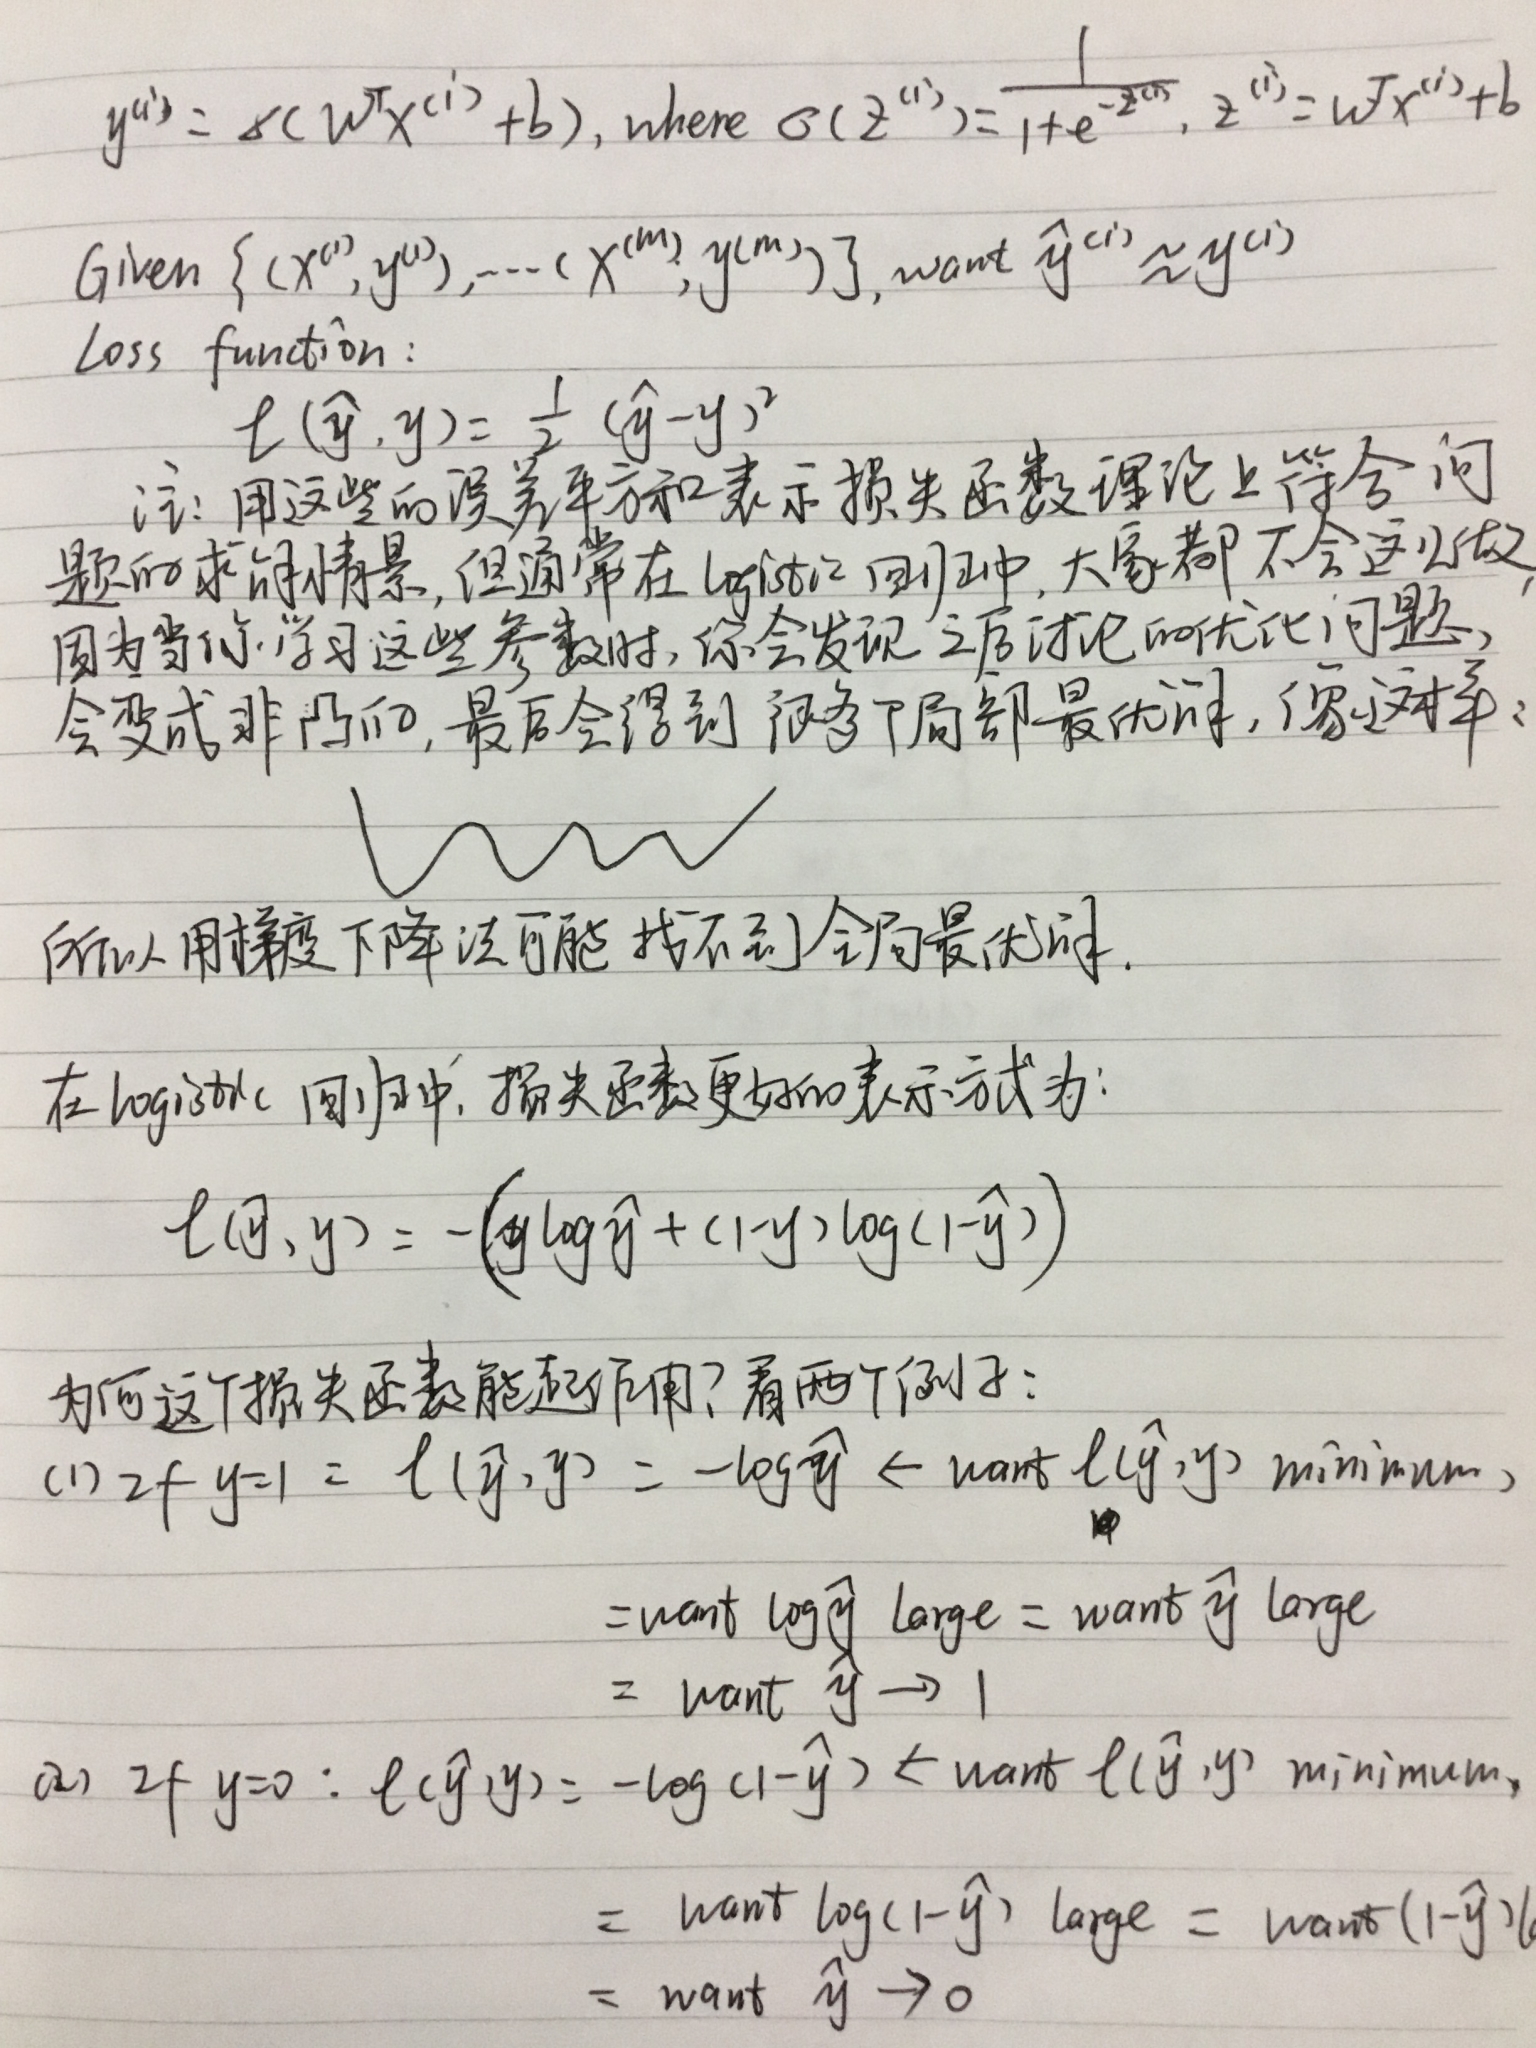 y⁽ⁱ⁾ = σ(wᵀx⁽ⁱ⁾+b), where σ(z⁽ⁱ⁾) = 1/(1+e^(-z⁽ⁱ⁾)), z⁽ⁱ⁾ = wᵀx⁽ⁱ⁾+b
Given {(x⁽¹⁾, y⁽¹⁾), ...(x⁽ᵐ⁾, y⁽ᵐ⁾)}, want ŷ⁽ⁱ⁾ ≈ y⁽ⁱ⁾
Loss function:
ℓ(ŷ, y) = 1/2 (ŷ-y)²
注: 用这些的误差平方和表示损失函数理论上符合问
题的求解情景, 但通常在logistic回归中, 大家都不会这么做,
因为当你学习这些参数时, 你会发现之后讨论的优化问题,
会变成非凸的, 最后会得到很多个局部最优解, 像这样:
所以用梯度下降法可能找不到全局最优解.
在logistic回归中, 损失函数更好的表示方式为:
ℓ(ŷ, y) = -(y log ŷ + (1-y) log(1-ŷ))
为何这个损失函数能起作用? 看两个例子:
(1) If y=1 = ℓ(ŷ, y) = -log ŷ ← want ℓ(ŷ, y) minimum,
= want log ŷ large = want ŷ large
= want ŷ → 1
(2) If y=0 : ℓ(ŷ, y) = -log(1-ŷ) ← want ℓ(ŷ, y) minimum,
= want log(1-ŷ) large = want (1-ŷ)
= want ŷ → 0